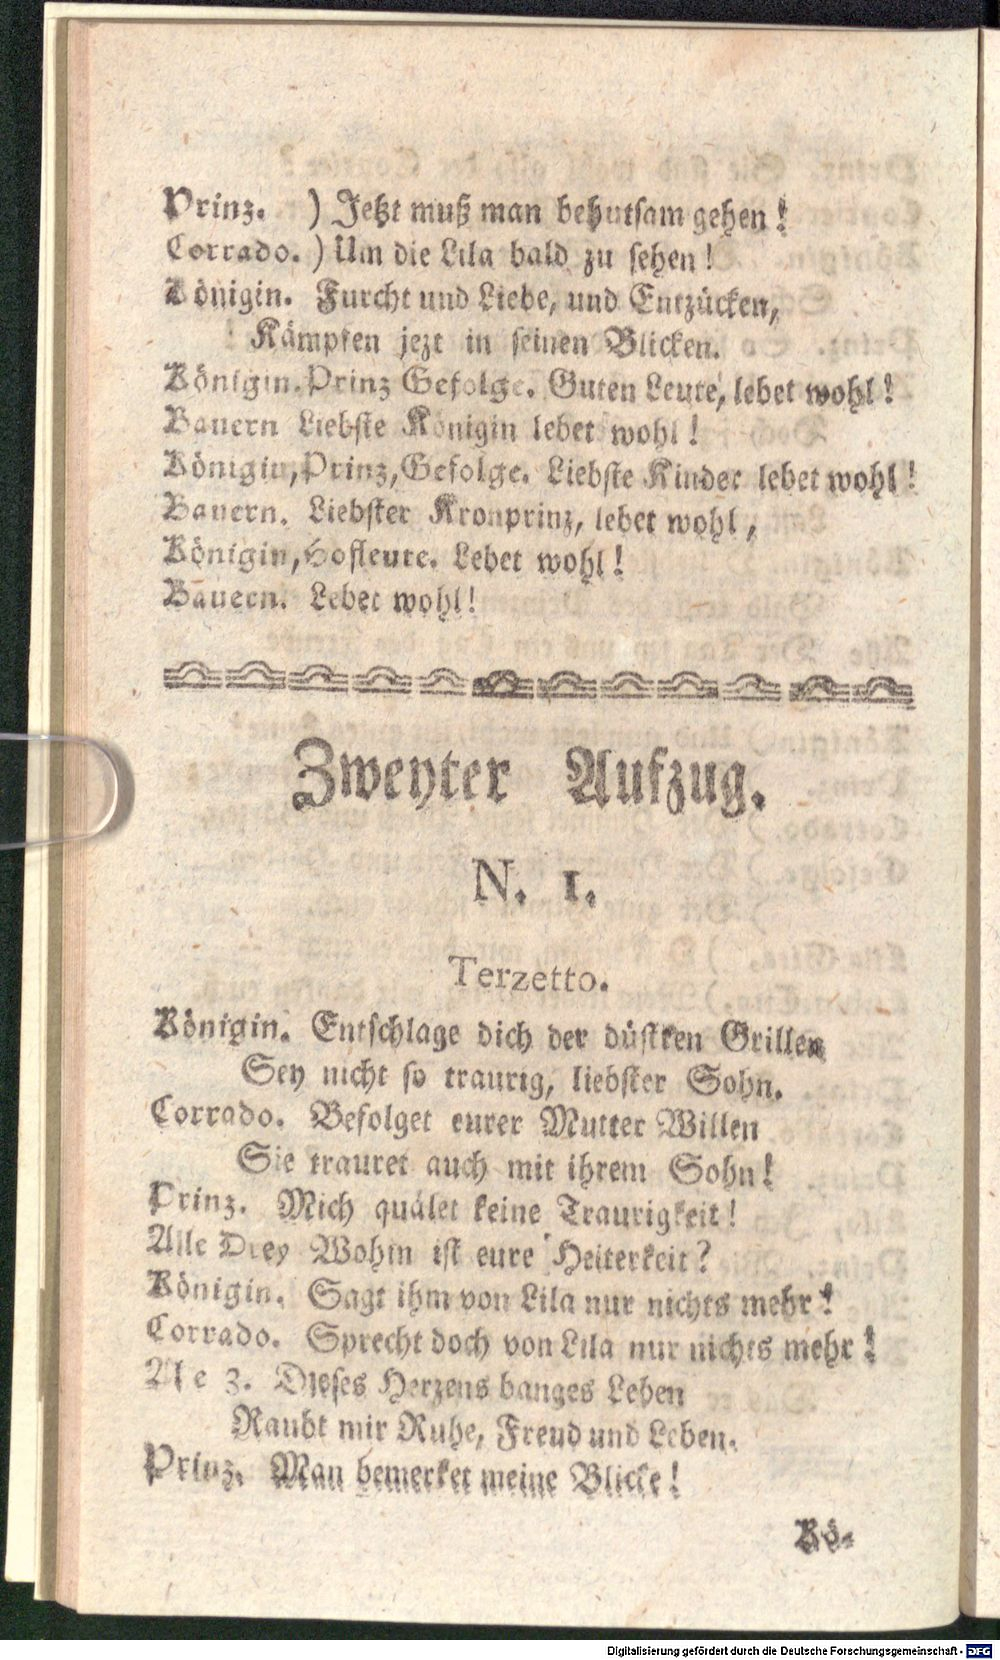 Prinz. ) Jetzt muß man behutsam gehen!
Corrado. ) Um die Lila bald zu sehen!
Königin. Furcht und Liebe, und Entzücken,
Kämpfen jezt in seinen Blicken.
Königin. Prinz Gefolge. Guten Leute, lebet wohl!
Bauern Liebste Königin lebet wohl!
Königin, Prinz, Gefolge. Liebste Kinder lebet wohl!
Bauern. Liebster Kronprinz, lebet wohl,
Königin, Hofleute. Lebet wohl!
Bauern. Lebet wohl!
Zweyter Aufzug.
N. 1.
Terzetto.
Königin. Entschlage dich der düstren Grillen
Sey nicht so traurig, liebster Sohn.
Corrado. Befolget eurer Mutter Willen
Sie trauret auch mit ihrem Sohn!
Prinz. Mich quälet keine Traurigkeit!
Alle Drey Wohin ist eure Heiterkeit?
Königin. Sagt ihm von Lila nur nichts mehr!
Corrado. Sprecht doch von Lila nur nichts mehr!
Alle 3. Dieses Herzens banges Beben
Raubt mir Ruhe, Freud und Leben.
Prinz. Man bemerket meine Blicke!
Kö-
Digitalisierung gefördert durch die Deutsche Forschungsgemeinschaft - DFG